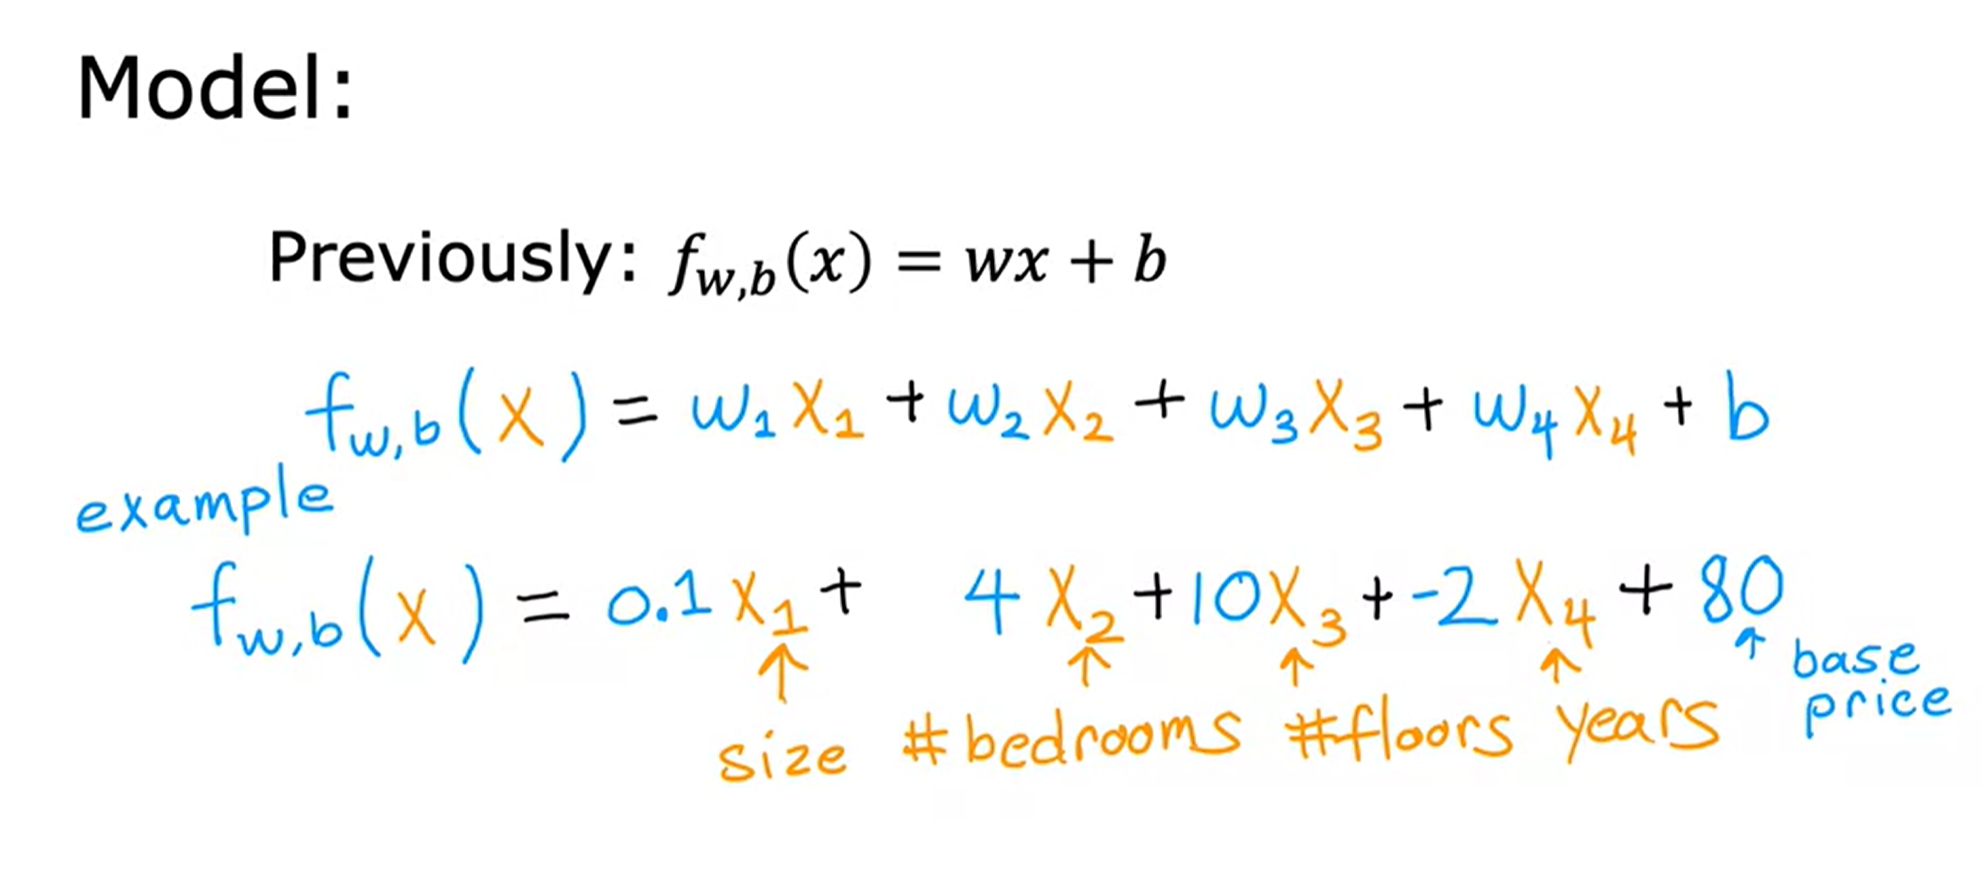 Model:
Previously: f_{w,b}(x) = wx + b
f_{w,b}(x) = w₁x₁ + w₂x₂ + w₃x₃ + w₄x₄ + b
example
f_{w,b}(x) = 0.1x₁ + 4x₂ + 10x₃ + -2x₄ + 80
↑ ↑ ↑ ↑ ↑ base
size #bedrooms #floors years price